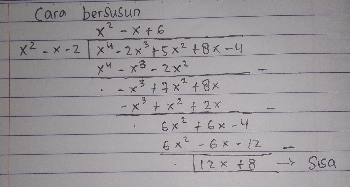 Cara bersusun
x² - x + 6
x² - x - 2 | x⁴ - 2x³ + 5x² + 8x - 4
x⁴ - x³ - 2x² -
- x³ + 7x² + 8x
- x³ + x² + 2x -
6x² + 6x - 4
6x² - 6x - 12 -
12x + 8 → Sisa